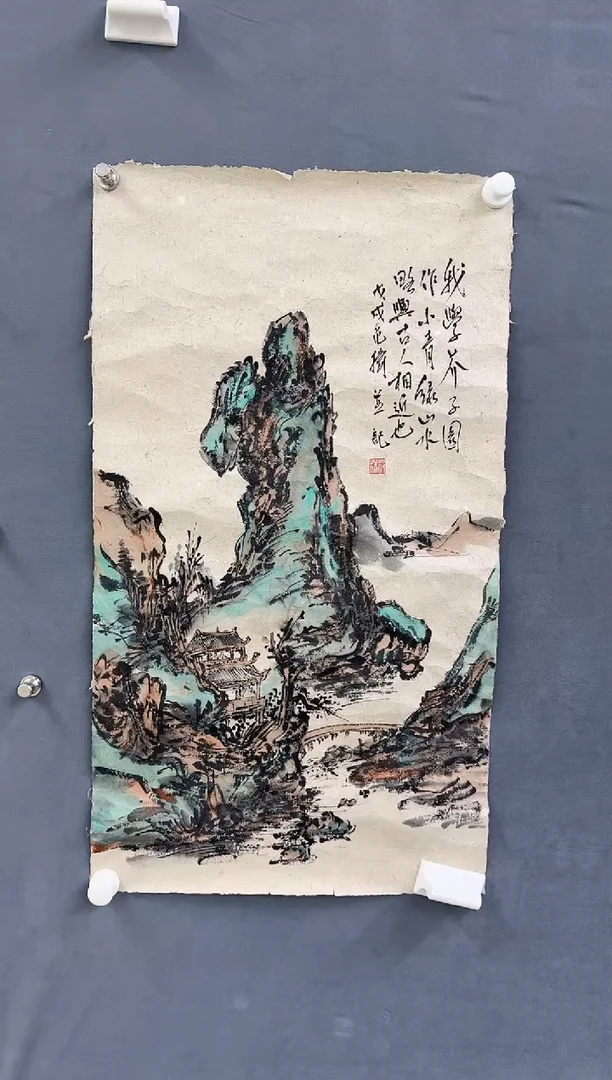 我學芥子園
作小青綠山水
略與古人相近也
戊戌 並記